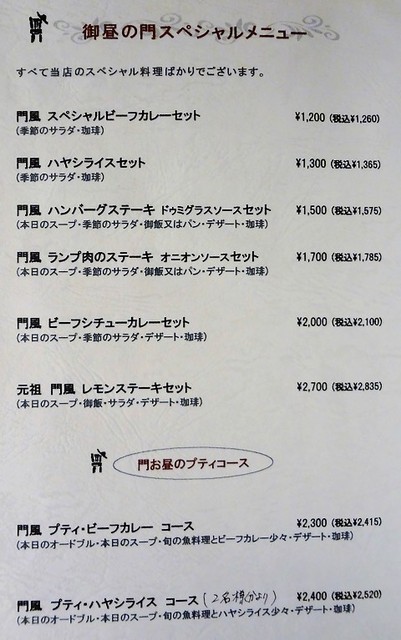 御昼の門スペシャルメニュー
すべて当店のスペシャル料理ばかりでございます。
門風 スペシャルビーフカレーセット ¥1,200 (税込¥1,260)
(季節のサラダ・珈琲)
門風 ハヤシライスセット ¥1,300 (税込¥1,365)
(季節のサラダ・珈琲)
門風 ハンバーグステーキ ドゥミグラスソースセット ¥1,500 (税込¥1,575)
(本日のスープ・季節のサラダ・御飯又はパン・デザート・珈琲)
門風 ランプ肉のステーキ オニオンソースセット ¥1,700 (税込¥1,785)
(本日のスープ・季節のサラダ・御飯又はパン・デザート・珈琲)
門風 ビーフシチューカレーセット ¥2,000 (税込¥2,100)
(本日のスープ・季節のサラダ・デザート・珈琲)
元祖 門風 レモンステーキセット ¥2,700 (税込¥2,835)
(本日のスープ・御飯・サラダ・デザート・珈琲)
門お昼のプティコース
門風 プティ・ビーフカレー コース ¥2,300 (税込¥2,415)
(本日のオードブル・本日のスープ・旬の魚料理とビーフカレー少々・デザート・珈琲)
門風 プティ・ハヤシライス コース (2名様分より) ¥2,400 (税込¥2,520)
(本日のオードブル・本日のスープ・旬の魚料理とハヤシライス少々・デザート・珈琲)